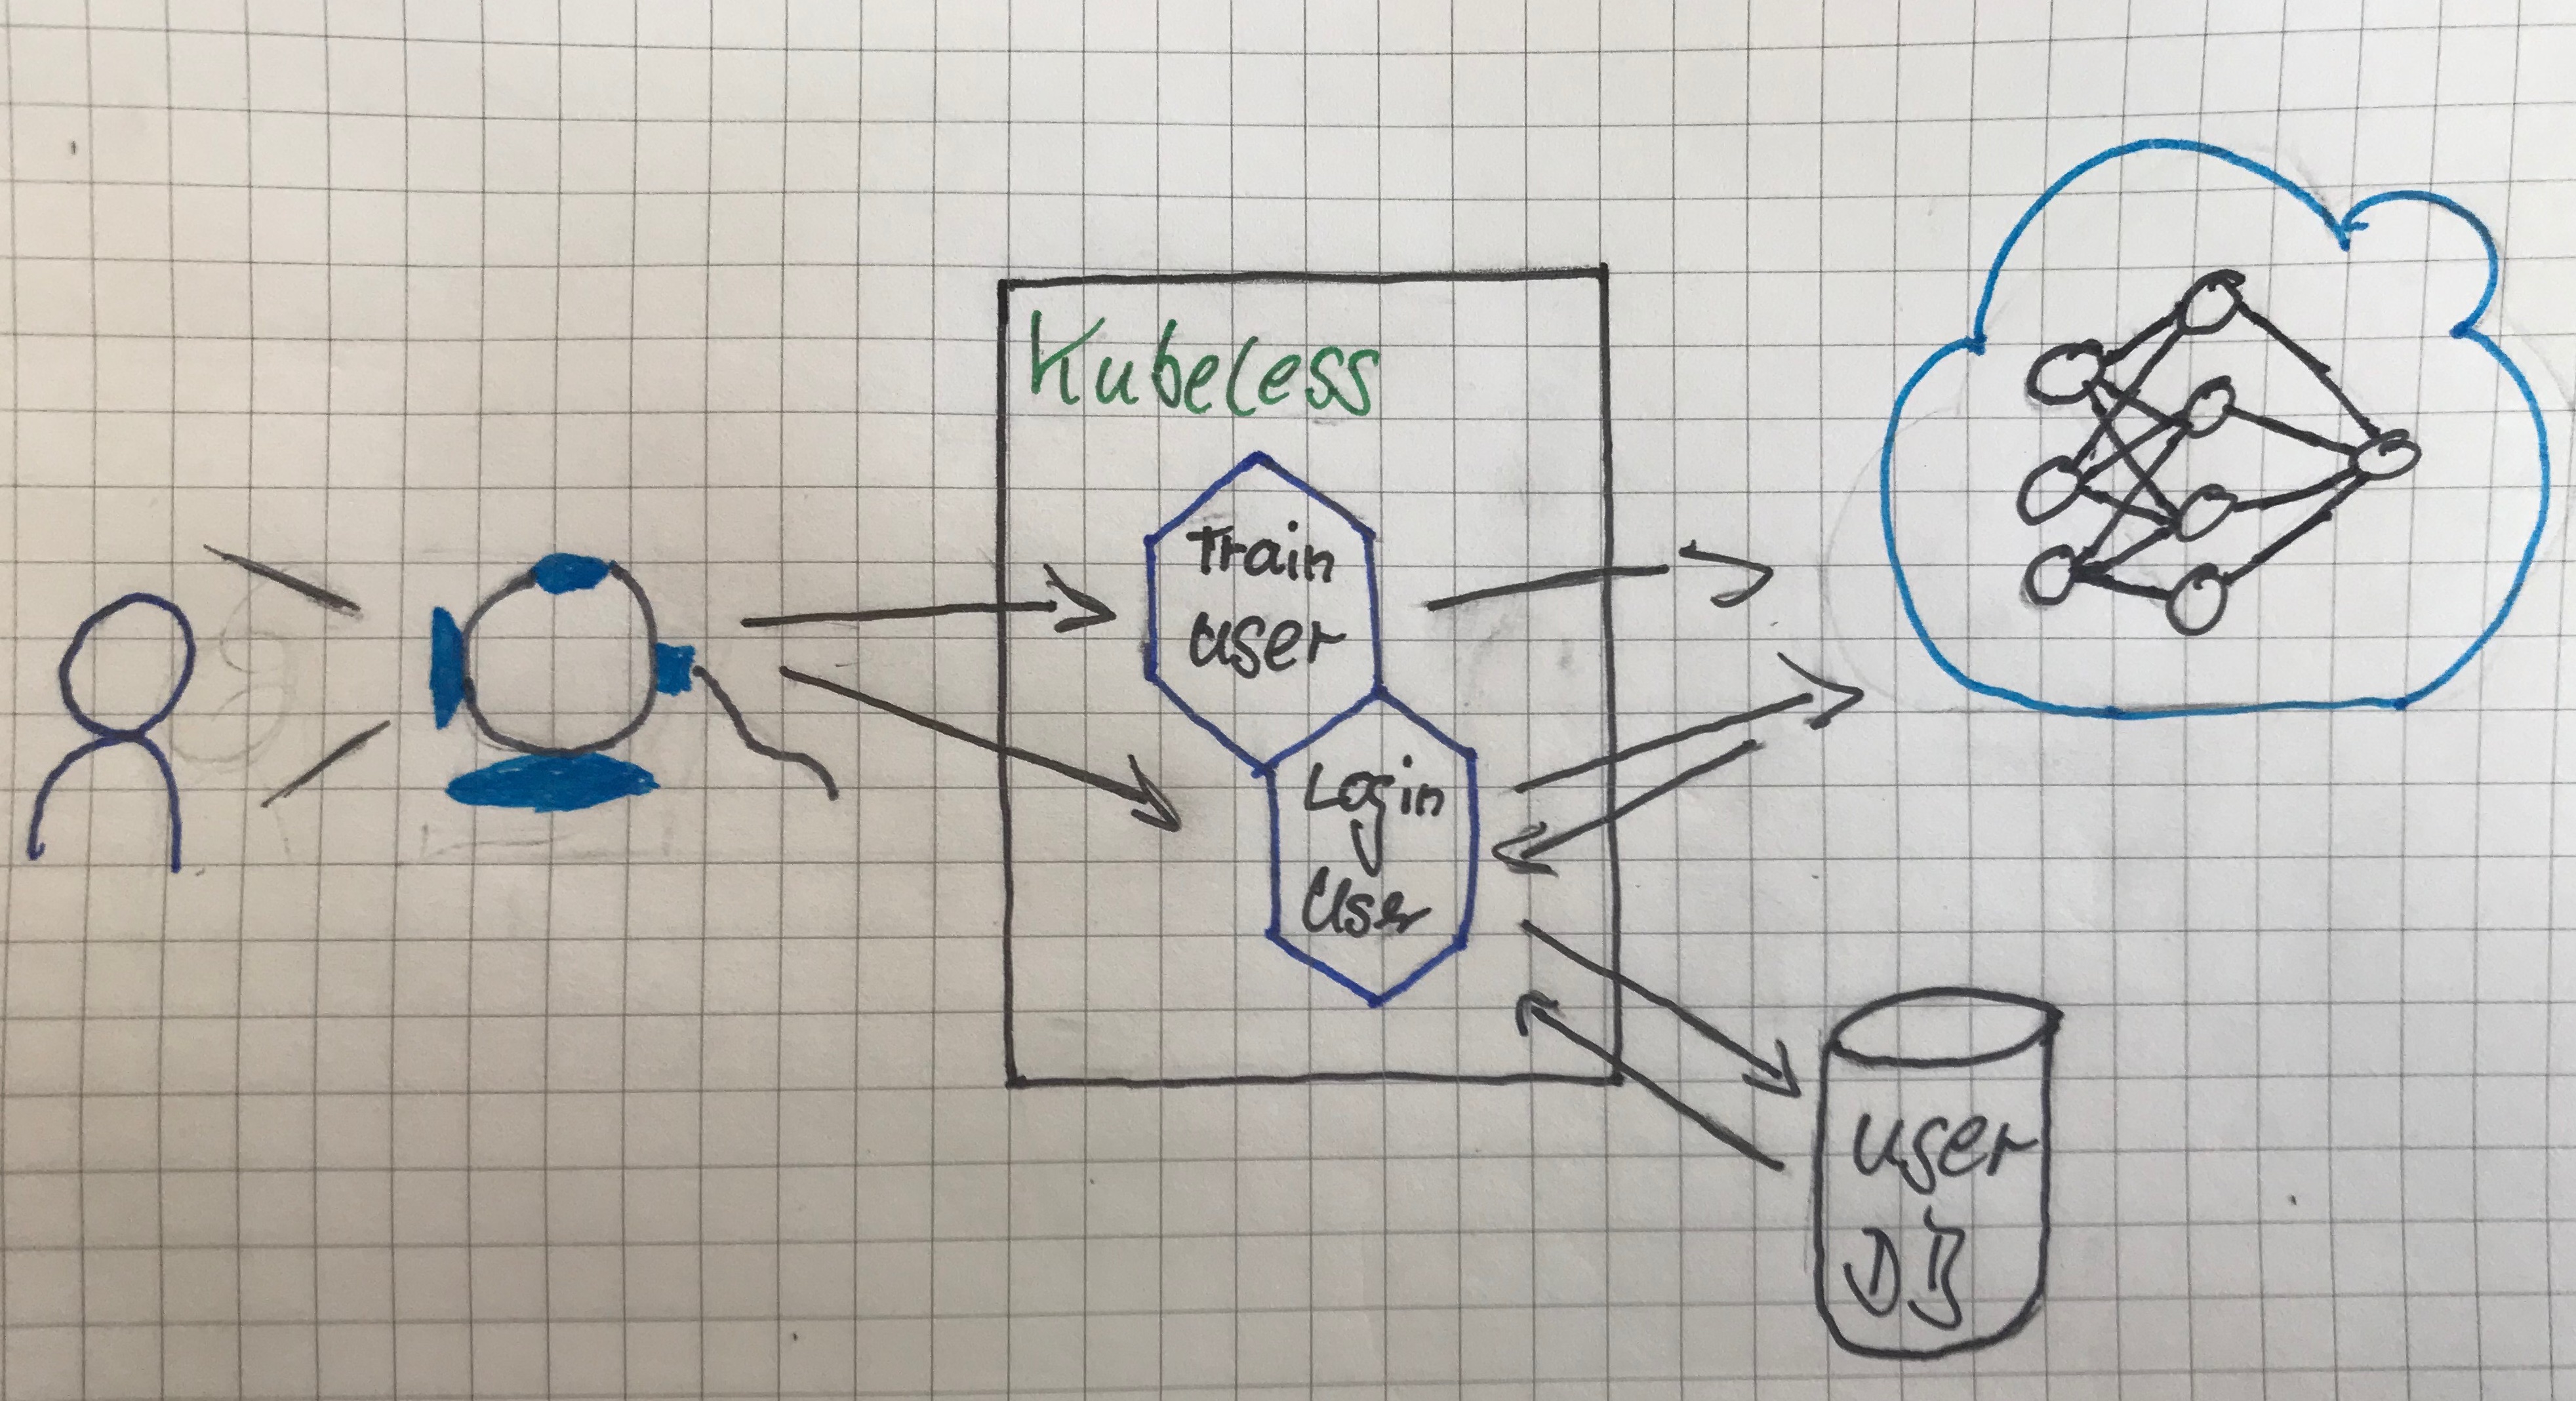 Kubeless
Train
user
Login
User
user
DB